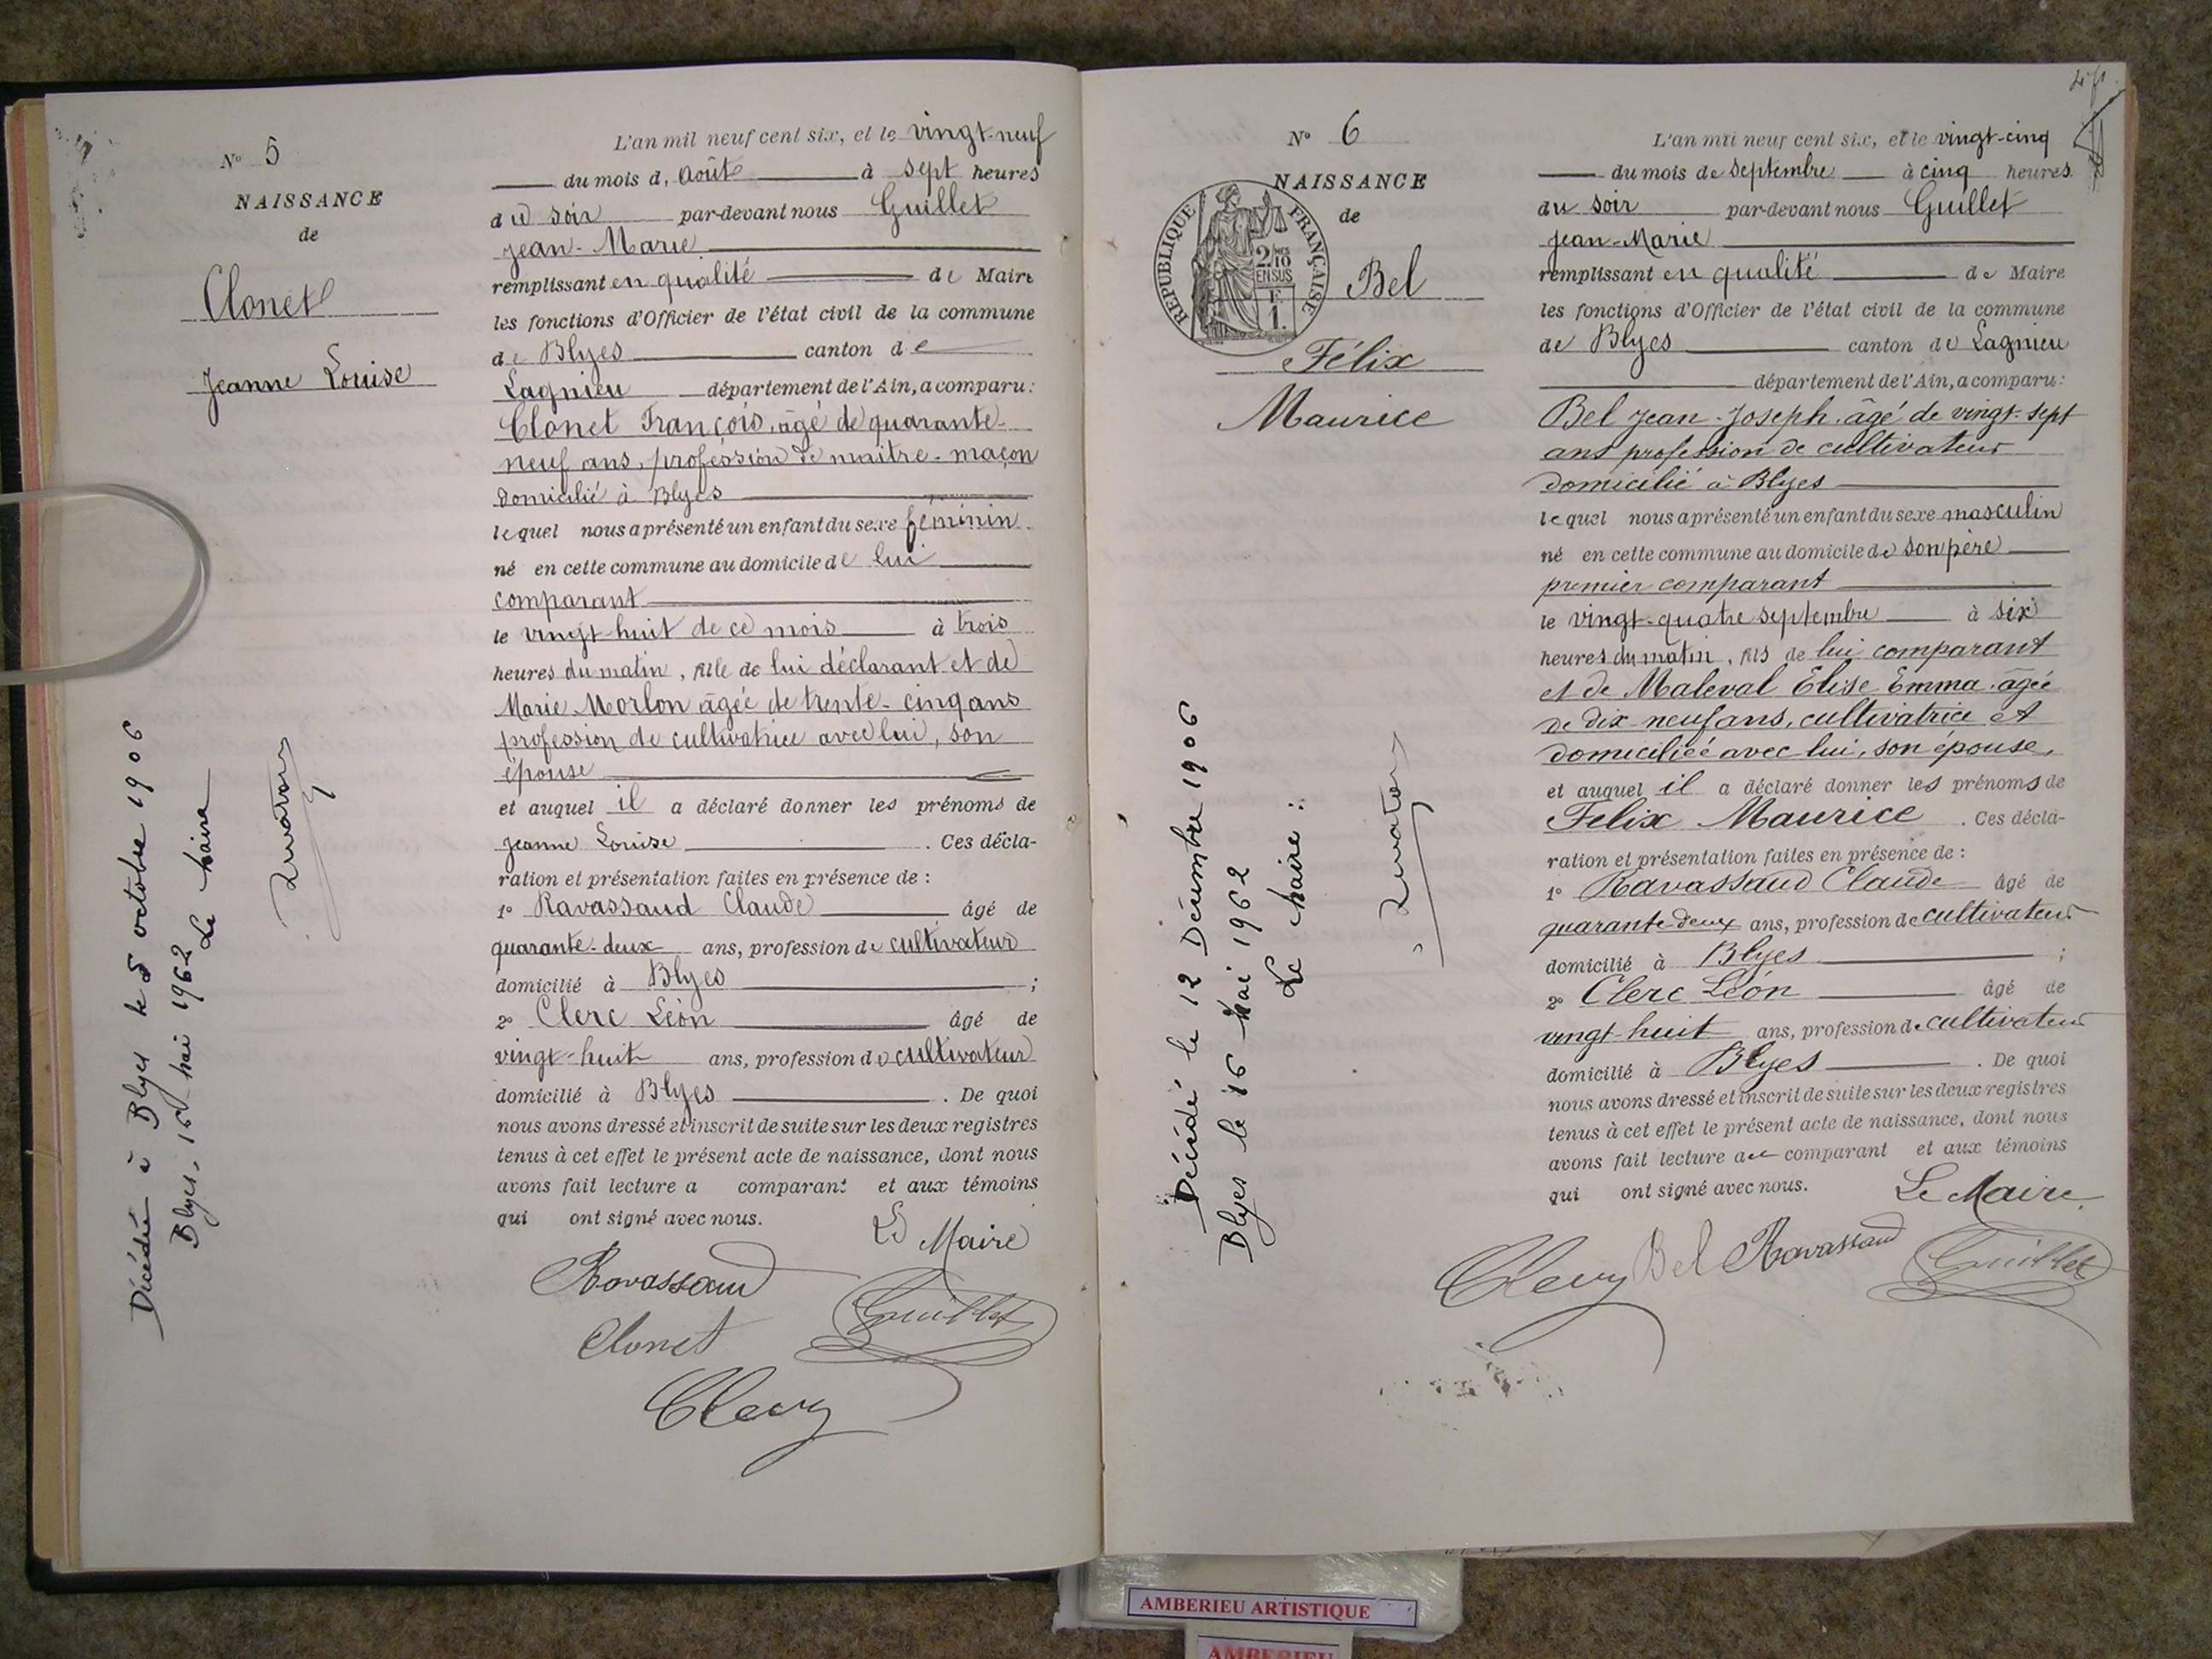 N° 5
NAISSANCE
de
Clonet
Jeanne Louise
Décédée à Blyes le 5 octobre 1906
Blyes, 16 Mai 1962
Le Maire
L'an mil neuf cent six, et le vingt-neuf
du mois d'août à sept heures
du soir par-devant nous Guillet
Jean-Marie
remplissant en qualité de Maire
les fonctions d'Officier de l'état civil de la commune
de Blyes canton de
Lagnieu département de l'Ain, a comparu:
Clonet François, âgé de quarante-
neuf ans, profession de maître-maçon
domicilié à Blyes
lequel nous a présenté un enfant du sexe féminin
né en cette commune au domicile de lui
comparant
le vingt-huit de ce mois à trois
heures du matin, fille de lui déclarant et de
Marie Morlon âgée de trente-cinq ans
profession de cultivatrice avec lui, son
épouse
et auquel il a déclaré donner les prénoms de
Jeanne Louise. Ces décla-
ration et présentation faites en présence de:
1° Ravassaud Claude âgé de
quarante-deux ans, profession de cultivateur
domicilié à Blyes;
2° Clerc Léon âgé de
vingt-huit ans, profession de cultivateur
domicilié à Blyes. De quoi
nous avons dressé et inscrit de suite sur les deux registres
tenus à cet effet le présent acte de naissance, dont nous
avons fait lecture a comparant et aux témoins
qui ont signé avec nous.
Le Maire
Ravassaud
Guillet
Clonet
Clerc
N° 6
NAISSANCE
de
RÉPUBLIQUE FRANÇAISE
2/10
EN SUS
F.
1.
Bel
Félix
Maurice
Décédé le 12 Décembre 1906
Blyes le 16 Mai 1962
Le Maire:
L'an mil neuf cent six, et le vingt-cinq
du mois de septembre à cinq heures
du soir par-devant nous Guillet
Jean-Marie
remplissant en qualité de Maire
les fonctions d'Officier de l'état civil de la commune
de Blyes canton de Lagnieu
département de l'Ain, a comparu:
Bel Jean-Joseph, âgé de vingt-sept
ans profession de cultivateur
domicilié à Blyes
lequel nous a présenté un enfant du sexe masculin
né en cette commune au domicile de son père
premier comparant
le vingt-quatre septembre à six
heures du matin, fils de lui comparant
et de Maleval Elise Emma âgée
de dix-neuf ans, cultivatrice et
domiciliée avec lui, son épouse,
et auquel il a déclaré donner les prénoms de
Félix Maurice. Ces décla-
ration et présentation faites en présence de:
1° Ravassaud Claude âgé de
quarante-deux ans, profession de cultivateur
domicilié à Blyes;
2° Clerc Léon âgé de
vingt-huit ans, profession de cultivateur
domicilié à Blyes. De quoi
nous avons dressé et inscrit de suite sur les deux registres
tenus à cet effet le présent acte de naissance, dont nous
avons fait lecture au comparant et aux témoins
qui ont signé avec nous.
Le Maire
Clerc Bel Ravassaud Guillet
AMBERIEU ARTISTIQUE
AMBERIEU